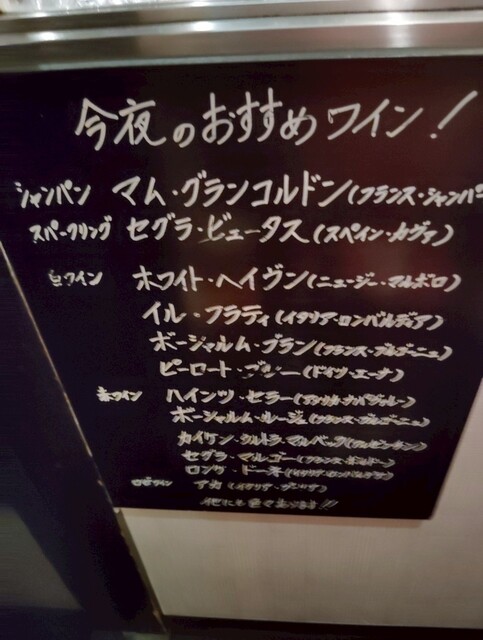 今夜のおすすめワイン!
シャンパン マム・グランコルドン(フランス・シャンパ
スパークリング セグラ・ビュータス(スペイン・カヴァ)
白ワイン ホワイト・ヘイヴン(ニュージー・マルボロ)
イル・フラティ(イタリア・ロンバルディア)
ボーシャルム・ブラン(フランス・ブルゴーニュ)
ピーロート・ブルー(ドイツ・ナーエ)
赤ワイン ハインツ・セラー(アメリカ・ナパバレー)
ボーシャルム・ルージュ(フランス・ブルゴーニュ)
カイケン・ウルトラ マルベック(アルゼンチン)
セグラ・マルゴー(フランス・ボルドー)
ロンケ・ドーネ(イタリア・ロンバルディア)
ロゼワイン アカ
他にも色々あります!!